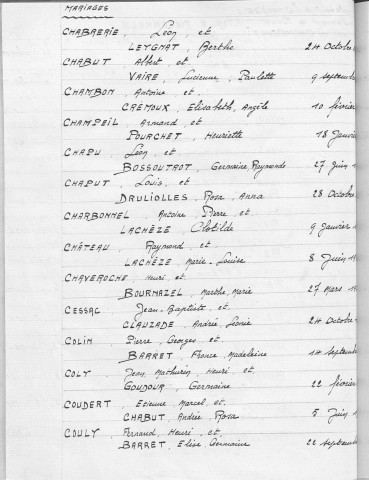 MARIAGES
CHABRERIE, Léon, et
LEYGNAT, Berthe 24 octobre
CHABUT, Albert et
VAIRE, Lucienne, Paulette 9 septembre
CHAMBON, Antoine et
CREMOUX, Elisabeth, Angèle 10 février
CHAMPEIL, Armand et
POURCHET, Henriette 18 janvier
CHAPU, Léon, et
BOSSOUTROT, Germaine, Raymonde 27 juin 1
CHAPUT, Louis, et
DRULIOLLES, Rosa, Anna 28 octobre
CHARBONNEL, Antoine, Pierre et
LACHÈZE, Clotilde 9 janvier 1
CHÂTEAU, Raymond et
LACHÈZE Marie-Louise 8 juin 19
CHAVEROCHE, Henri, et
BOURNAZEL, Marthe, Marie 27 mars 19
CESSAC, Jean-Baptiste et
CLAUZADE, Andrée, Léonie 24 octobre
COLIN, Pierre, Georges et
BARRET, France, Madeleine 14 septembre
COLY, Jean, Mathurin, Henri et
GOUDOUR, Germaine 22 février
COUDERT, Etienne, Marcel, et
CHABUT, Andrée, Rosa 5 juin 1
COULY, Fernand, Henri et
BARRET, Elise, Germaine 22 septembre